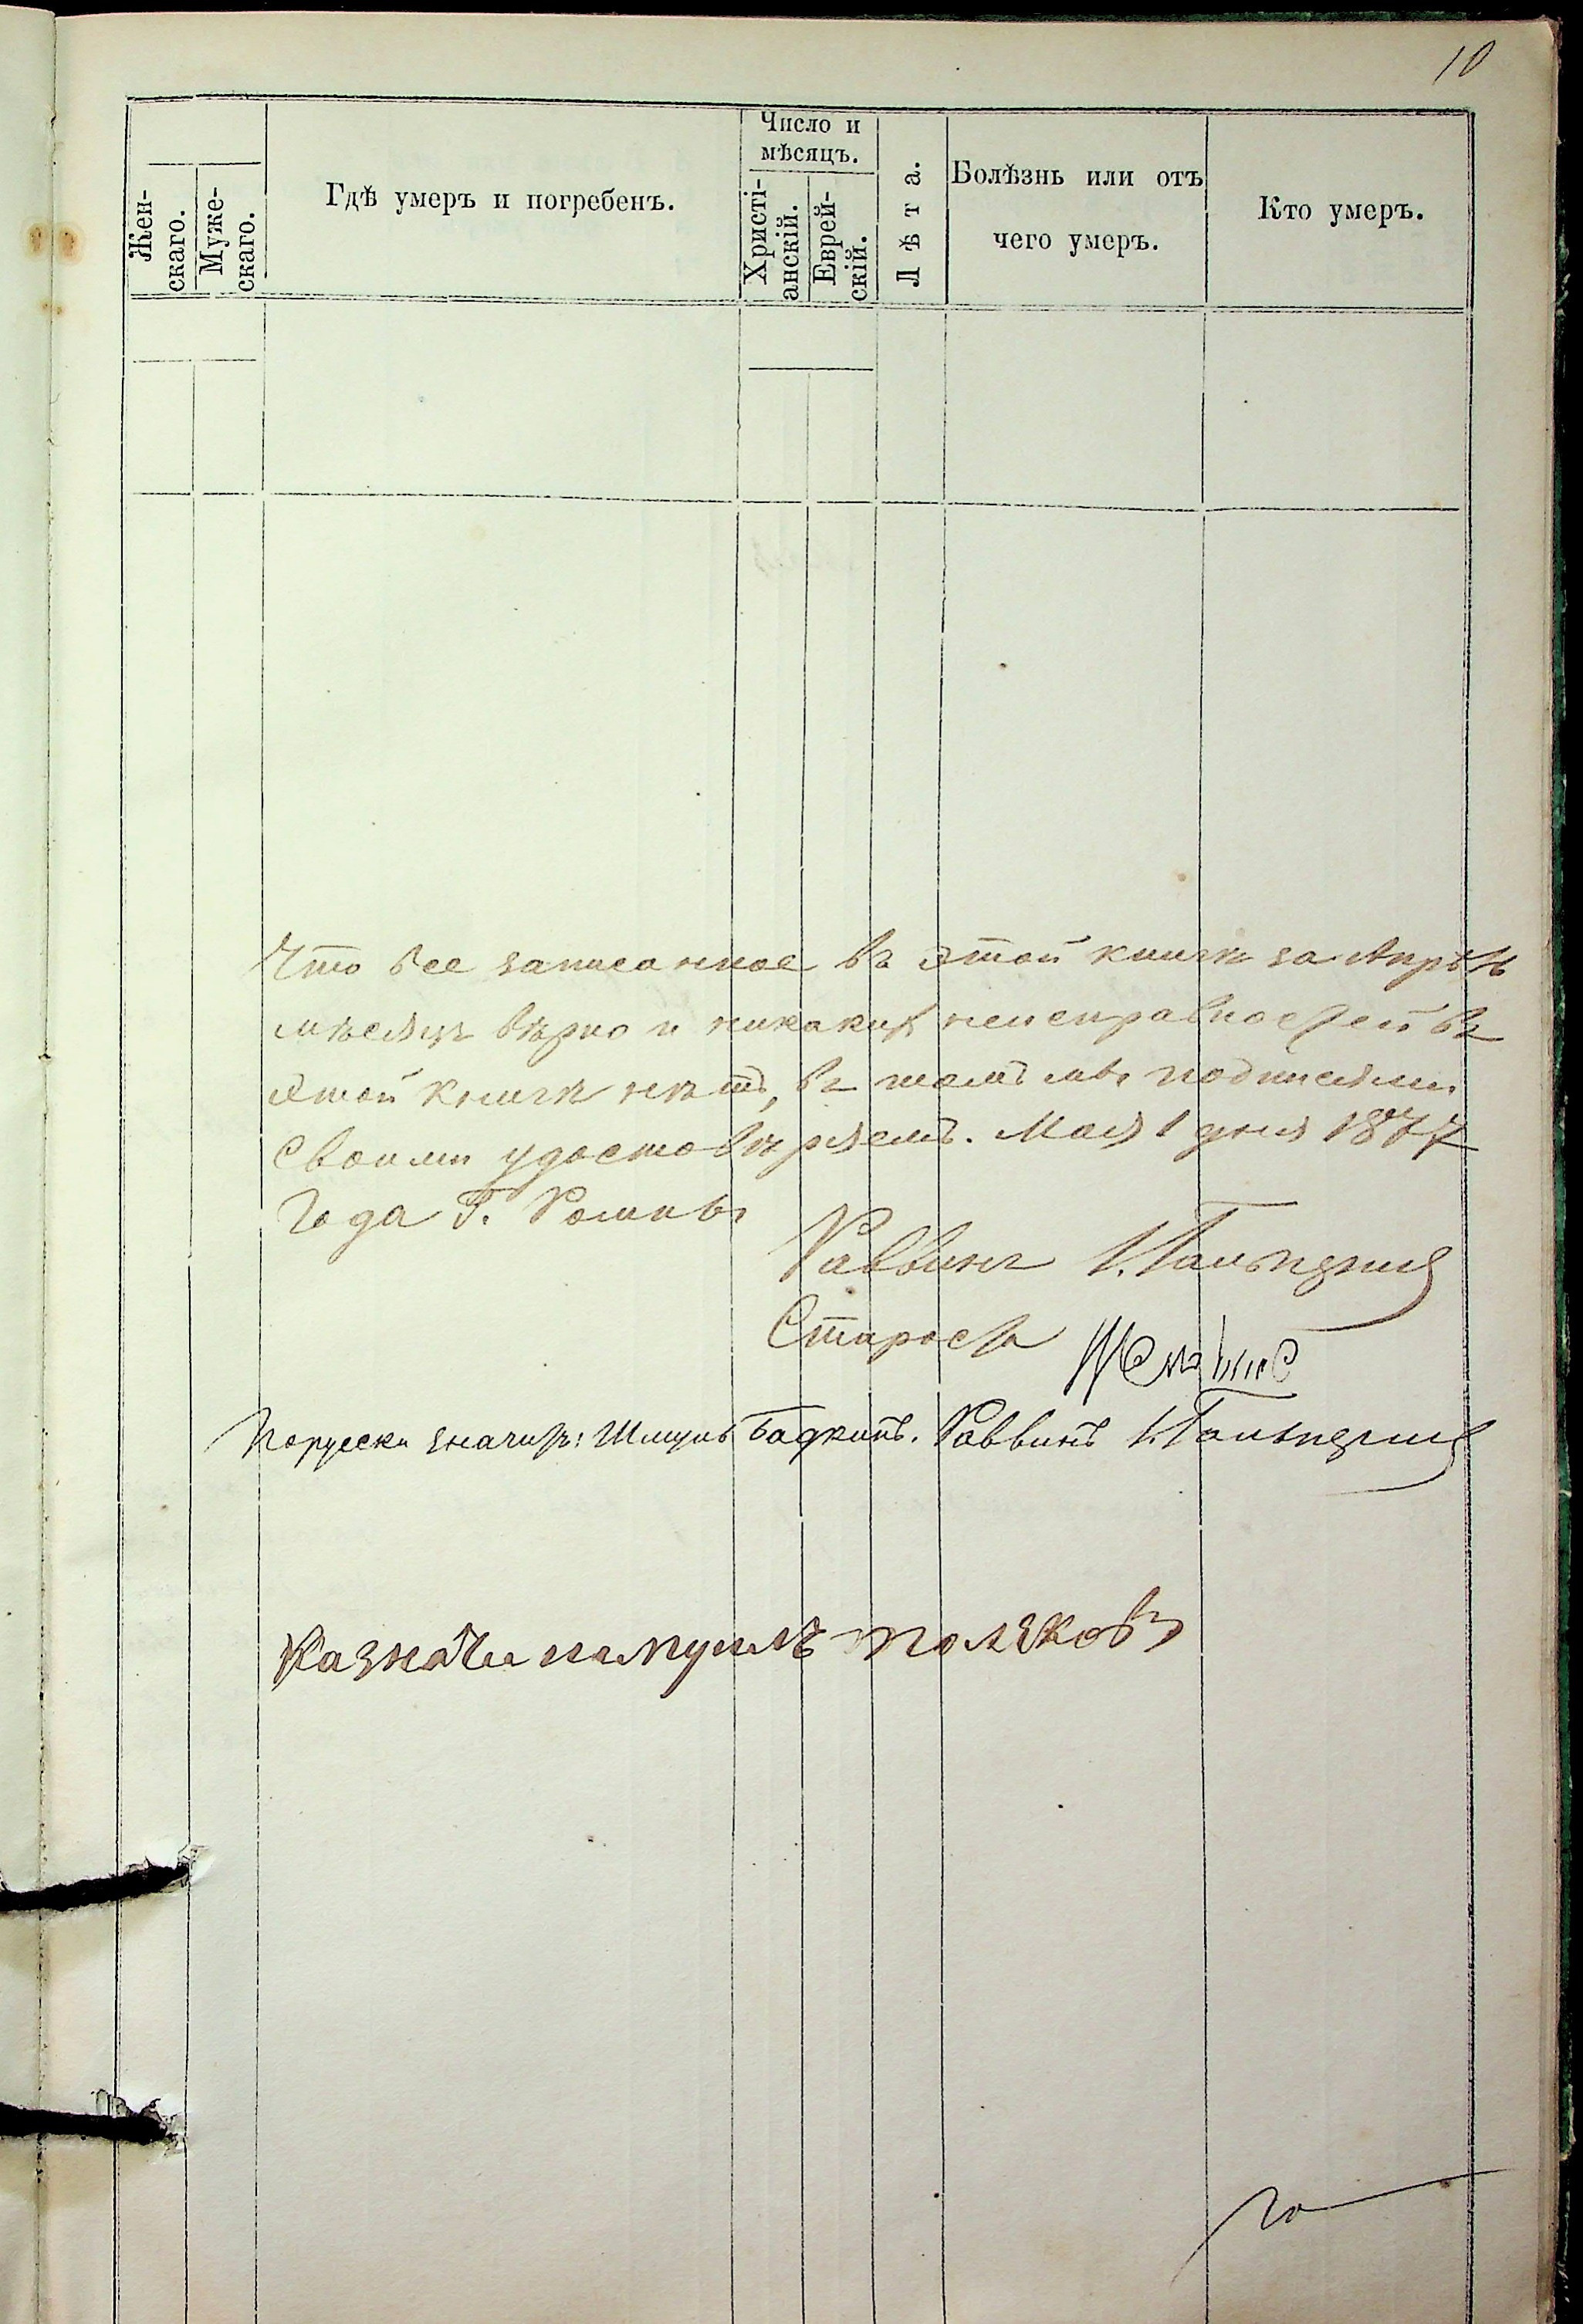 10
Число и
мѣсяцъ.
Жен-
скаго.
Муже-
скаго.
Гдѣ умеръ и погребенъ.
Христі-
анскій.
Еврей-
скій.
Лѣта.
Болѣзнь или отъ
чего умеръ.
Кто умеръ.
Что все записанное въ этой книгѣ за Апрѣль
мѣсяцъ вѣрно и никакихъ неисправностей въ
этой книгѣ нѣтъ, въ томъ мы подписями
своими удостовѣряемъ. Мая 1 дня 1877
года Г. Ромны
Раввинъ
Староста
Порусски значитъ: Шмуль Бадкинъ. Раввинъ
Казначи Поляковъ